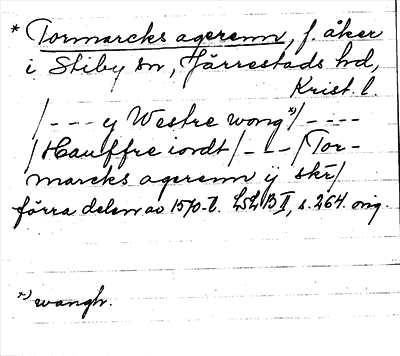 * Tormarcks agerenn, f. åker
i Stiby sn, Järrestads hd,
Krist. l.
/--- y Westre wong *)/----
/Hauffre iordt/---/Tor-
marcks agerenn ij skr/
förra delen av 1570-t. LSLB II, s. 264. orig.
*) wangh.